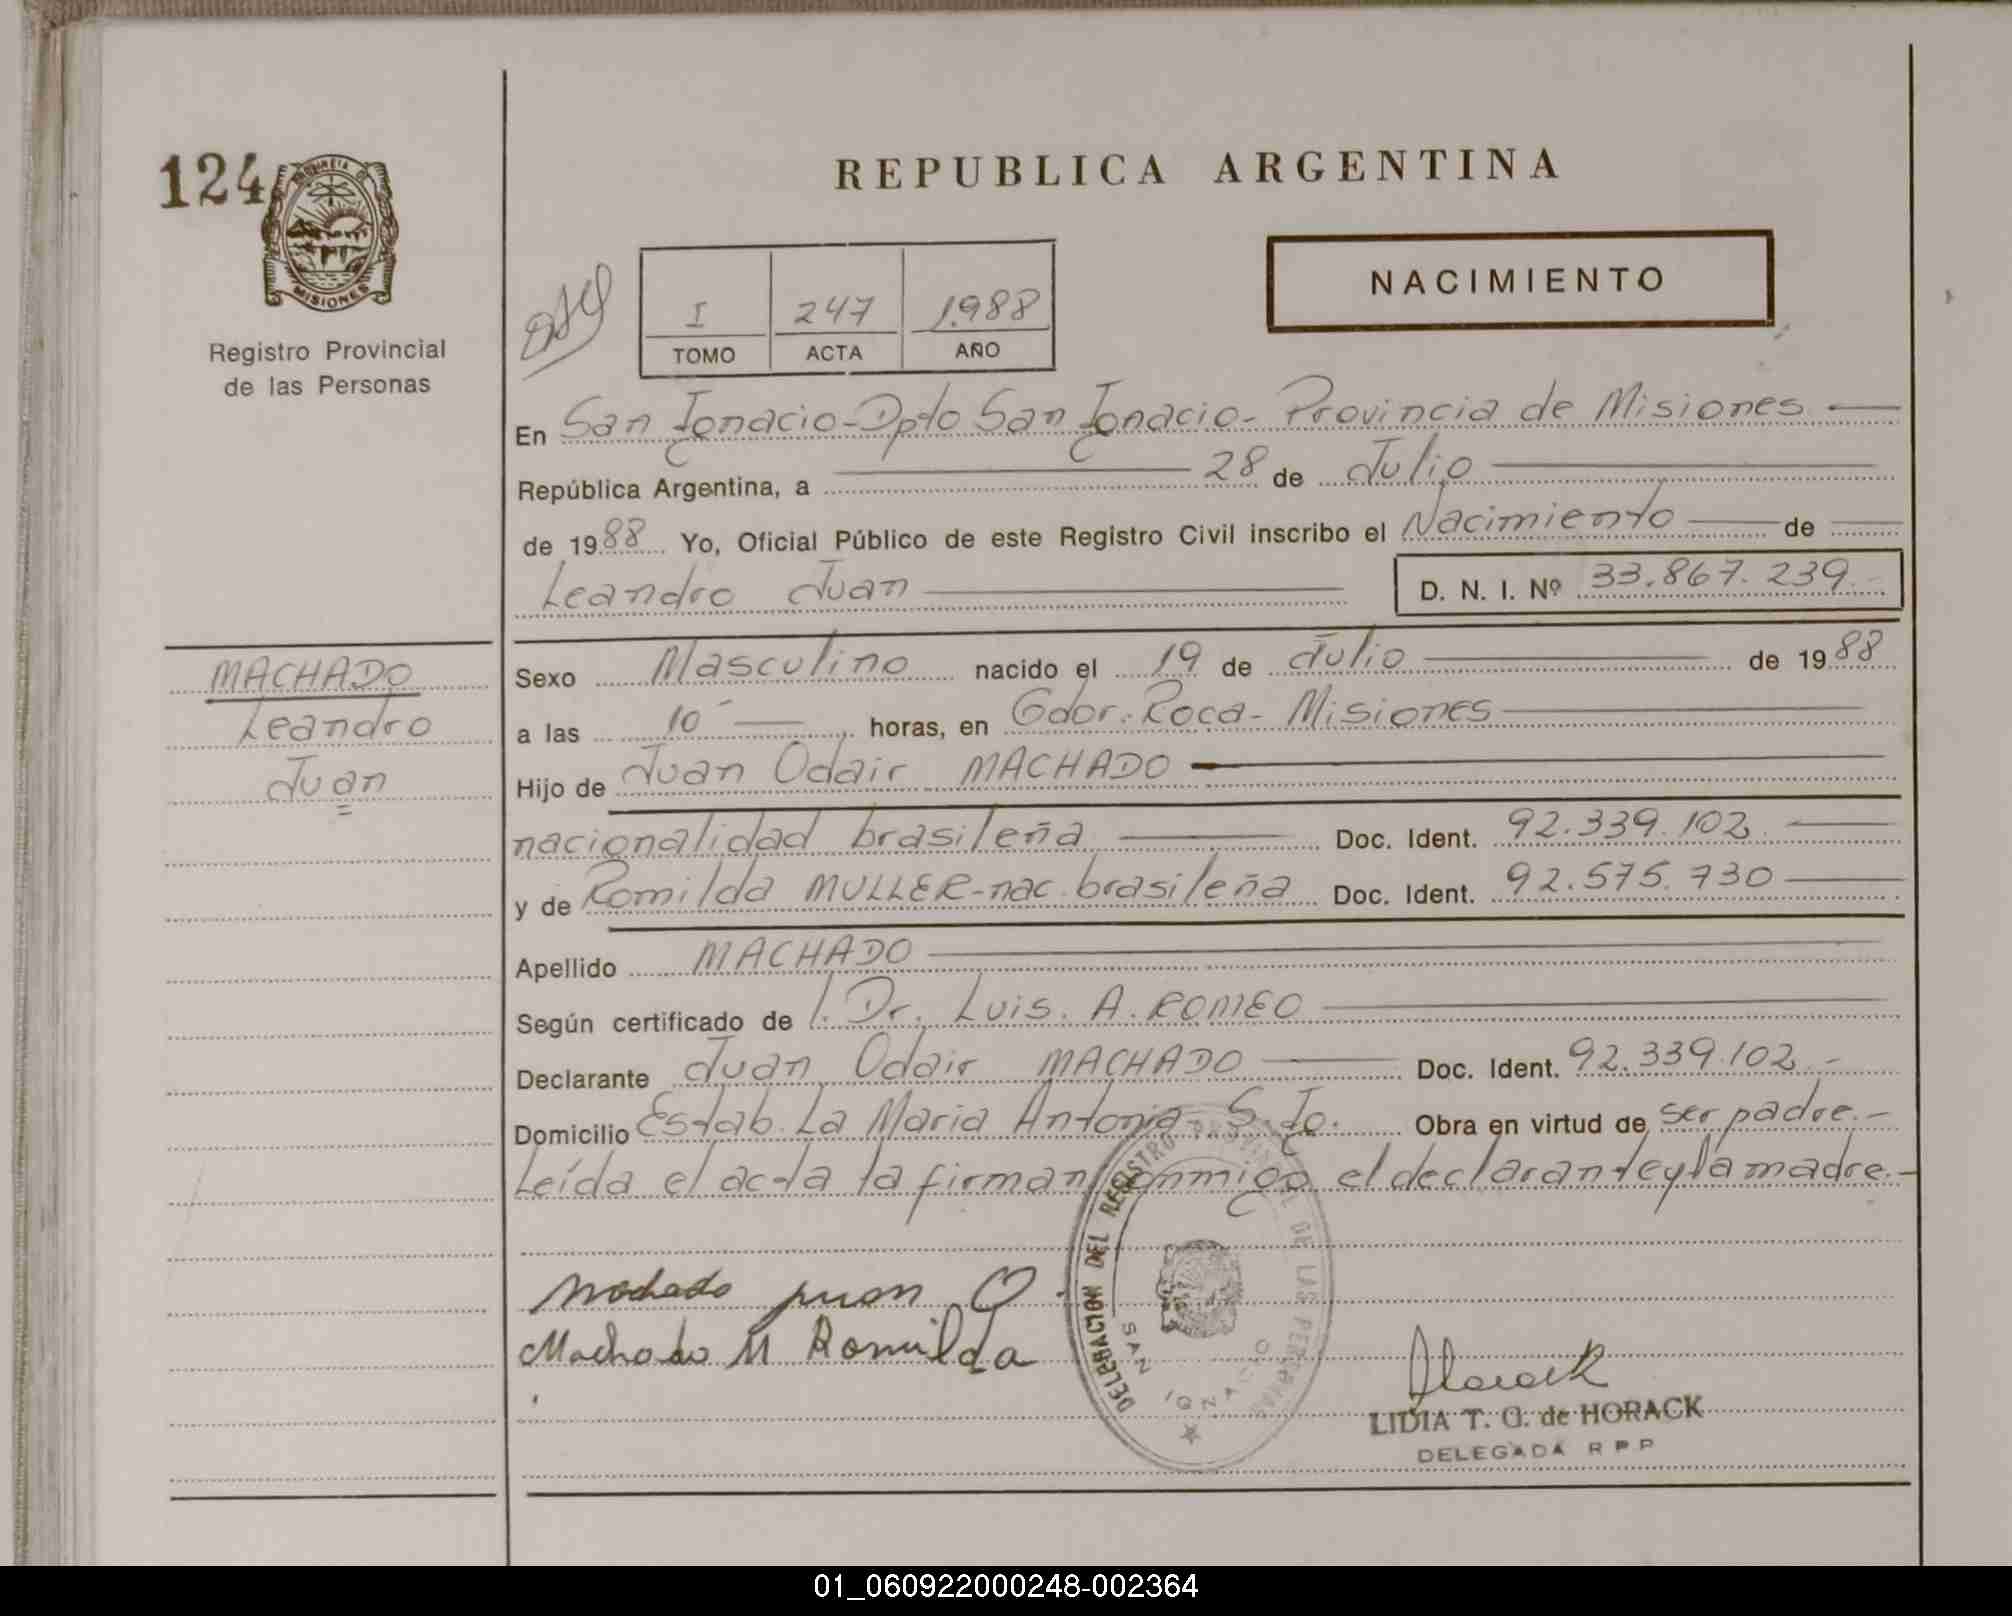 124
PROVINCIA D
MISIONES
Registro Provincial
de las Personas
REPUBLICA ARGENTINA
NACIMIENTO
I 247 1.988
TOMO ACTA AÑO
En San Ignacio-Dpto San Ignacio- Provincia de Misiones
República Argentina, a 28 de Julio
de 1988 Yo, Oficial Público de este Registro Civil inscribo el Nacimiento de
Leandro Juan D. N. I. Nº 33.867.239.-
MACHADO
Leandro
Juan
Sexo Masculino nacido el 19 de Julio de 1988
a las 10 horas, en Gdor. Roca- Misiones
Hijo de Juan Odair MACHADO
nacionalidad brasileña Doc. Ident. 92.339.102
y de Romilda MULLER-nac. brasileña Doc. Ident. 92.575.730
Apellido MACHADO
Según certificado de l. Dr. Luis. A. ROMEO
Declarante Juan Odair MACHADO Doc. Ident. 92.339.102.-
Domicilio Estab. La Maria Antonia-S. Io. Obra en virtud de ser padre.-
Leída el acta la firman conmigo el declarante y la madre.-
Machado juan O
Machado M Romilda
DELEGACION DEL REGISTRO PROVINCIAL DE LAS PERSONAS
SAN IGNACIO
Horack
LIDIA T. G. de HORACK
DELEGADA R P P
01_060922000248-002364